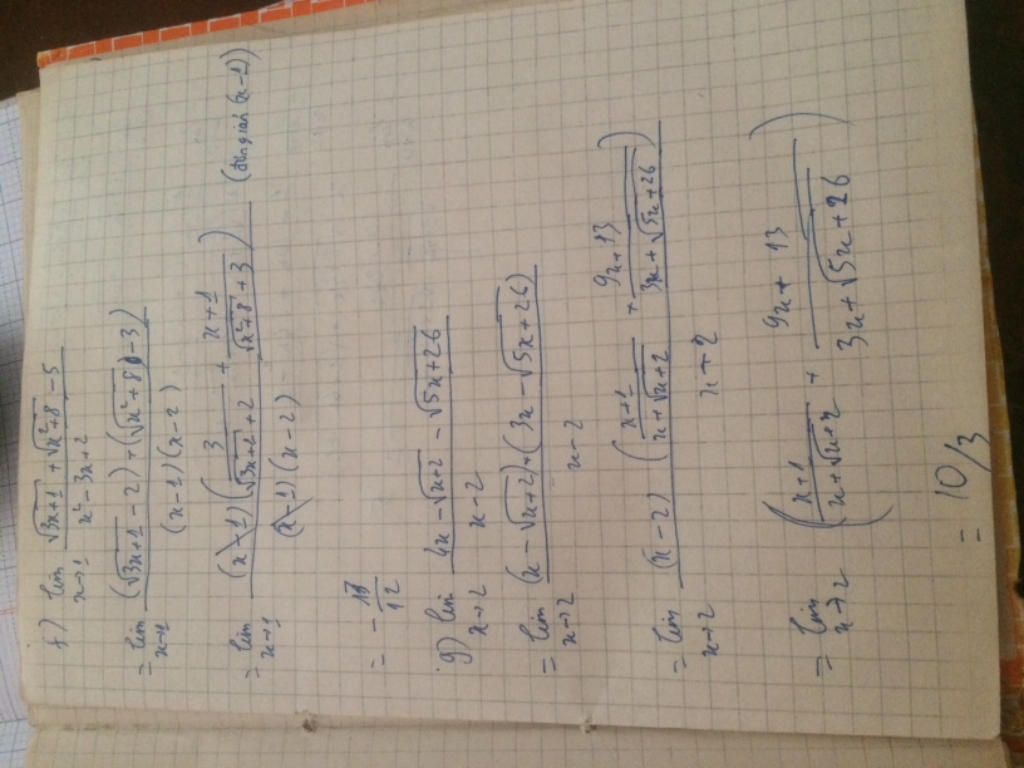 f) lim x→1 (√(3x+1) + √(x²+8) - 5) / (x² - 3x + 2)
= lim x→1 ((√(3x+1) - 2) + (√(x²+8) - 3)) / ((x-1)(x-2))
= lim x→1 (x-1)(3/(√(3x+2) + 2) + (x+1)/(√(x²+8) + 3)) / ((x-1)(x-2)) (đơn giản (x-1))
= - 13/12
g) lim x→2 (4x - √(x+2) - √(5x+26)) / (x-2)
= lim x→2 ((x - √(x+2)) + (3x - √(5x+26))) / (x-2)
= lim x→2 (x-2) ((x+1)/(x+√(x+2)) + (9x+13)/(3x+√(5x+26))) / (x+2)
= lim x→2 ((x+1)/(x+√(x+2)) + (9x+13)/(3x+√(5x+26)))
= 10/3